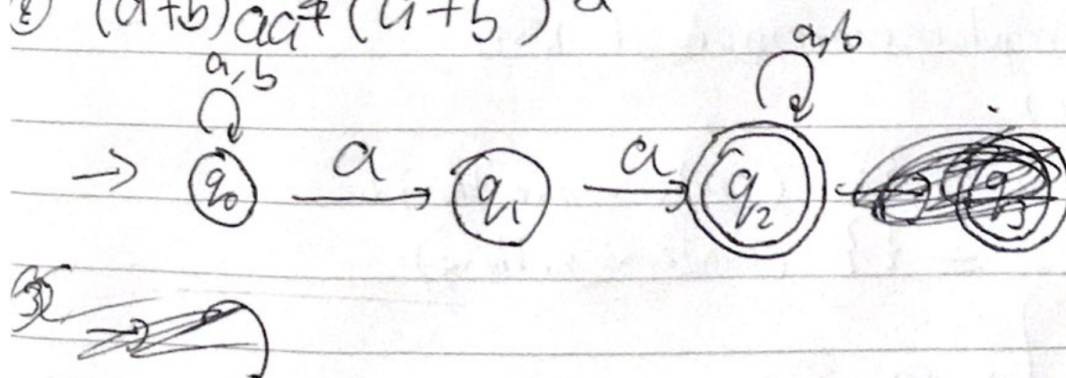 ② (a+b) aa* (a+b) a
a, b
a, b
→ q₀ a q₁ a q₂